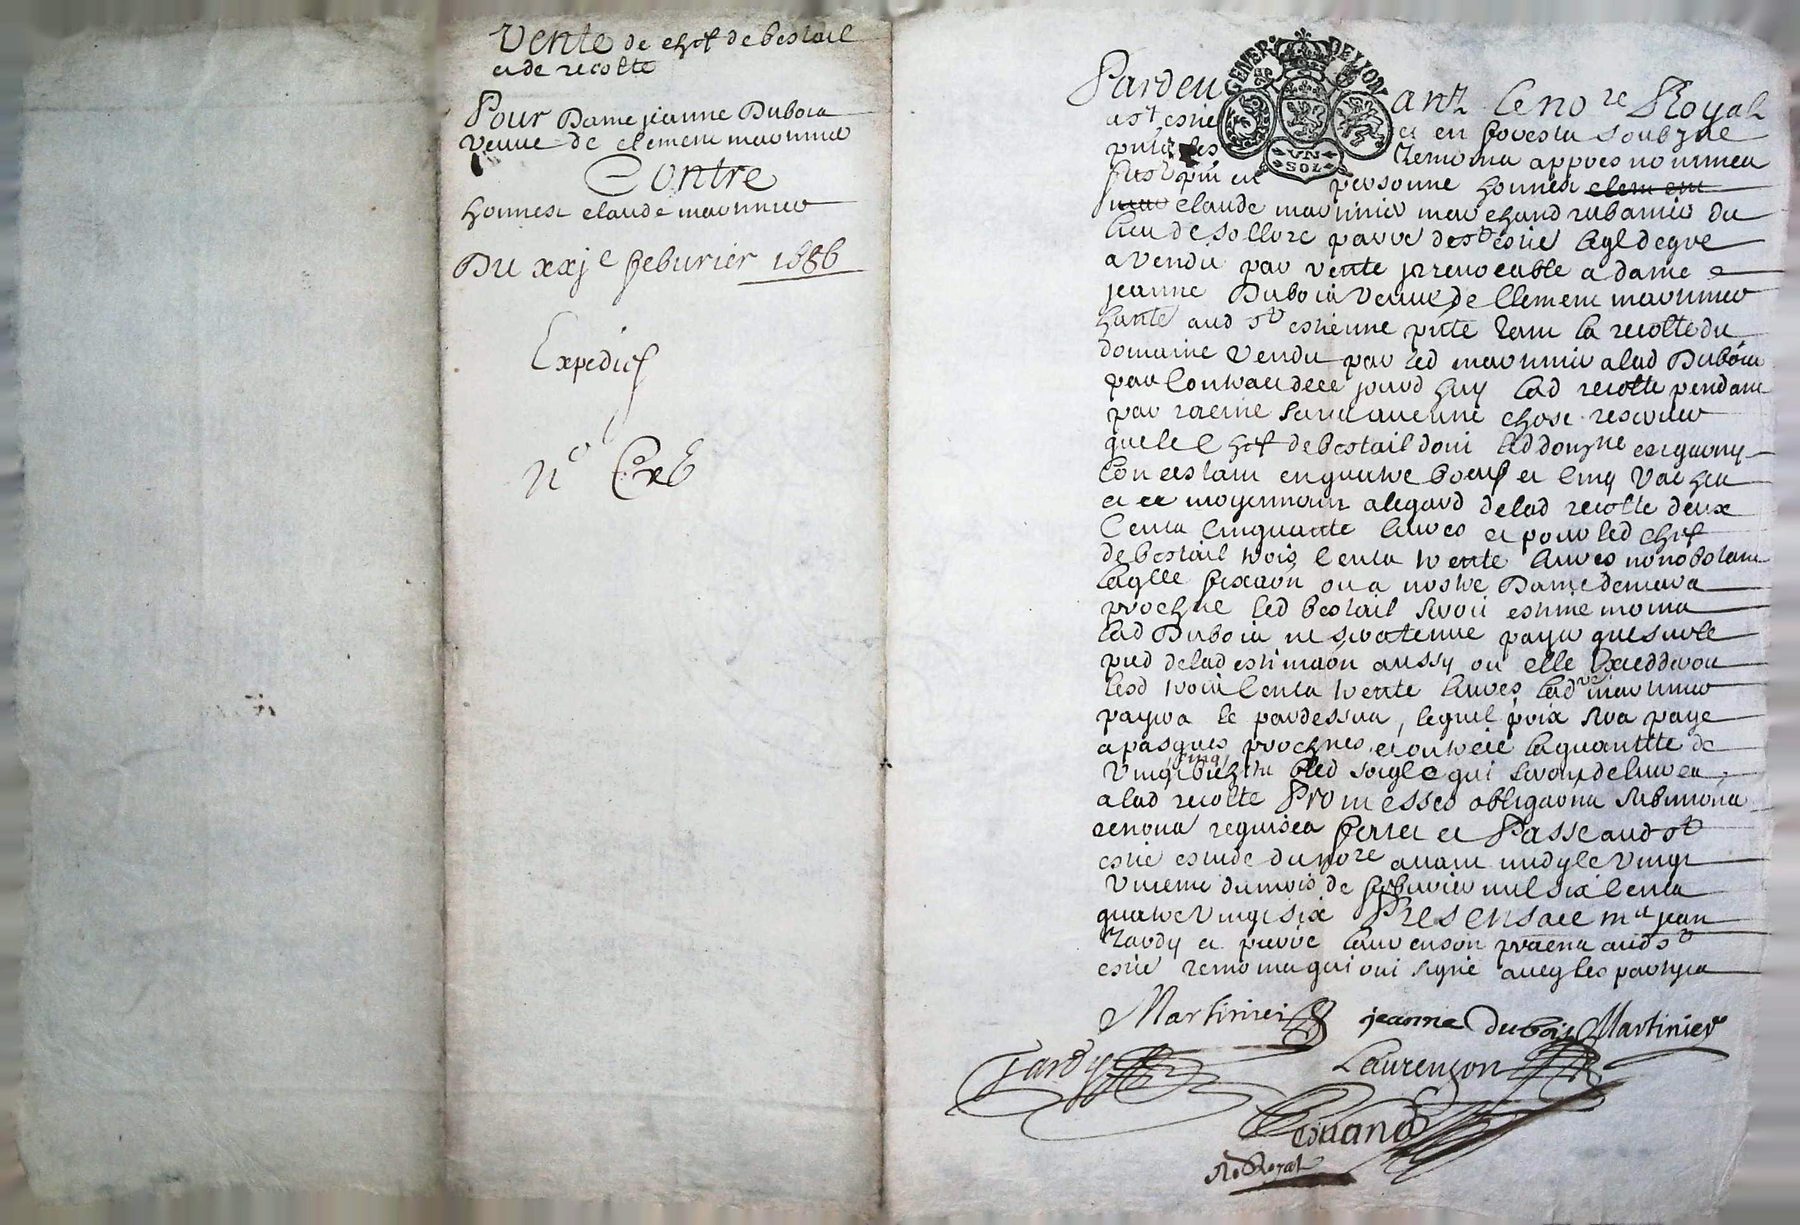 Vente de chef de bestail
et de recolte
Pour Dame jeanne Dubois
veuve de clement martinier
Contre
honneste claude martinier
Du xxj e feburier 1686
Expedié
N°
GENER. DE LYON
VN
SOL
Pardevant le no.re Royal
a s.t estie et en forests soubzne
presentz les tesmoins appres nommes
fust pnt en personne honneste clement
mar claude martinier marchand rubanier du
lieu de sollore parroe de st estie lequel de gre
a vendu par vente jrrevocable a dame
jeanne Dubois veuve de Clement martinier
hante aud st estienne pnte la recolte du
domaine vendu par led martinier a lad Dubois
par Contract de ce jourd huy lad recolte pendante
par racine sans aucune chose reserver
que le chef de bestail dont led domne est garny
Consistant en quatre boeufs et Cinq vaches
et ce moyennant a legard de lad recolte deux
Centz Cinquante livres et pour led chef
de bestail trois Centz trente livres nonobstant
laqlle fixaon ou a nostre Dame de mars
prochne led bestail seroit estimé moins
lad Dubois ne sera tenue payer que sur le
pied de lad estimaon aussy ou elle Exceddera
lesd trois Centz trente livres lad ve martinier
payera le pardessus, lequel prix sera payé
a pasques prochnes et outre ce la quantité de
Vingt cinq bichetz bled seigle qui seront delivrez
a lad recolte Promesses obligaons submions
renons requises fait et Passé aud st
estie estude du nore avant midy le vingt
vnieme du mois de feburier mil six Centz
quatre vingt six Presens a ce me jean
Tardy et pierre Laurenson praens aud st
estie temoins qui ont signé avec les parties
Martinier jeanne Dubois Martinier
Tardy Laurenson
No Royal